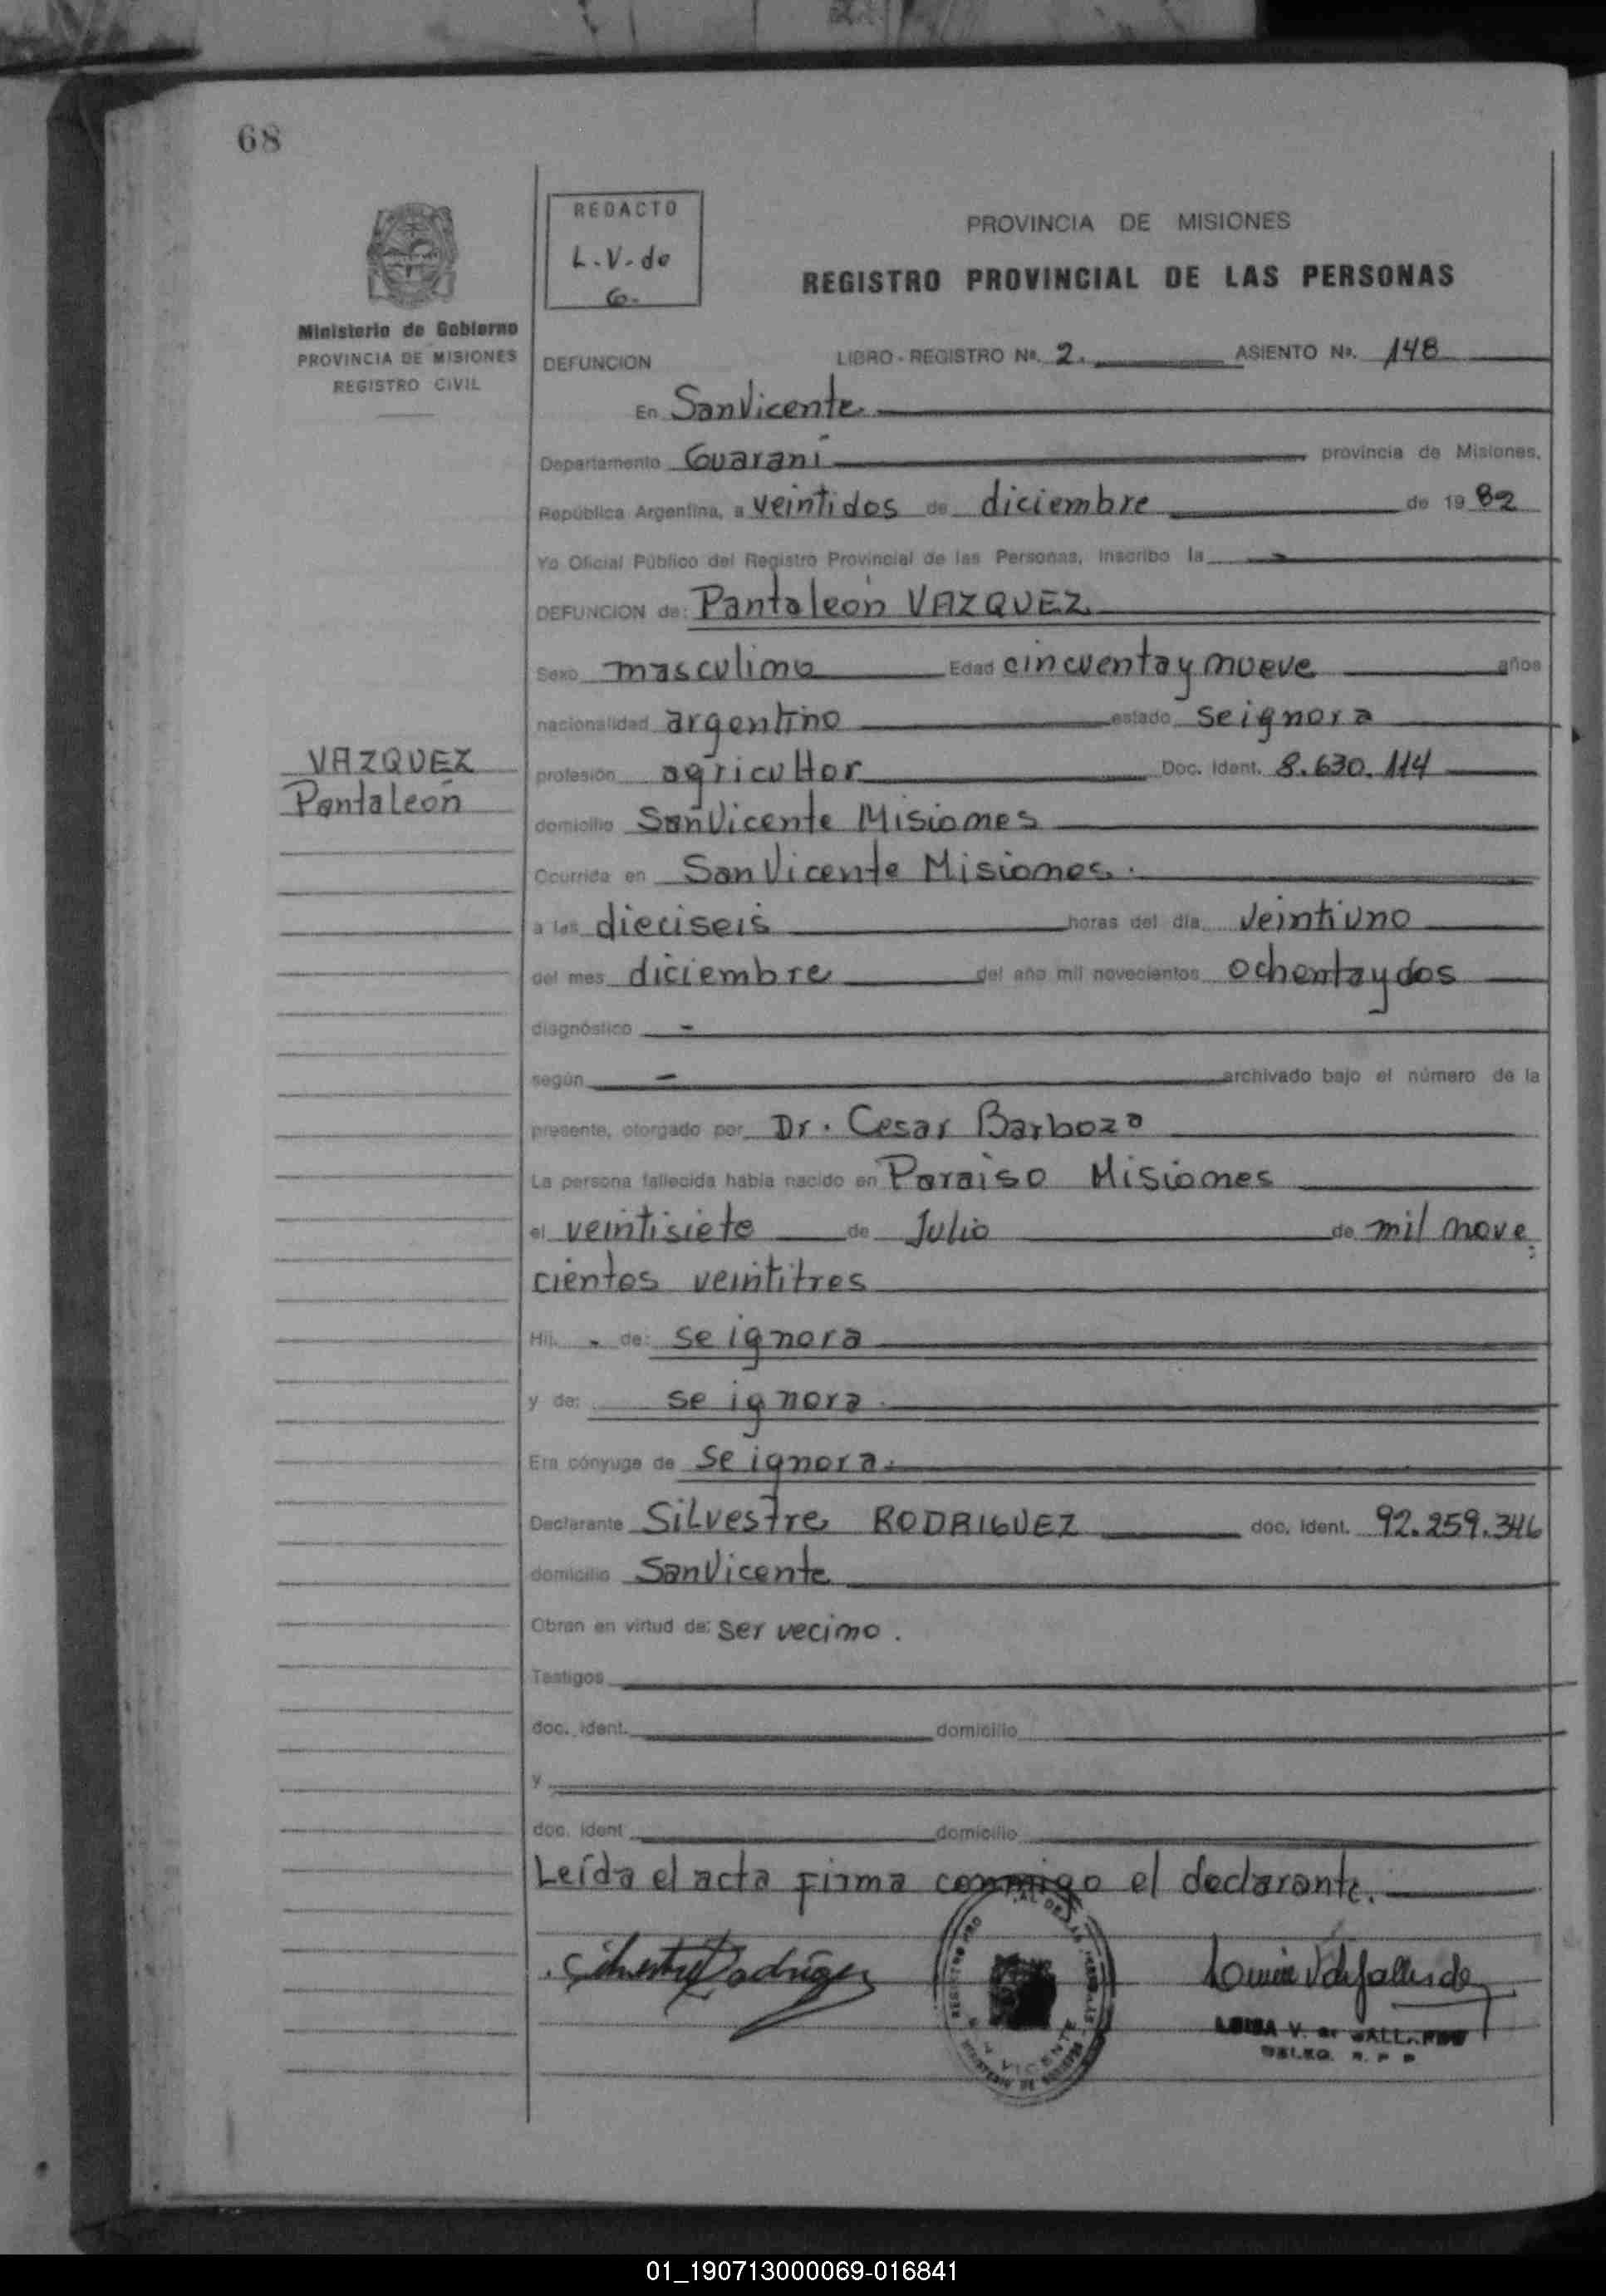 68
REDACTO
L.V. de
G.
PROVINCIA DE MISIONES
REGISTRO PROVINCIAL DE LAS PERSONAS
Ministerio de Gobierno
PROVINCIA DE MISIONES
REGISTRO CIVIL
DEFUNCION LIBRO - REGISTRO Nº. 2. ASIENTO Nº. 148
En San Vicente
Departamento Guaraní provincia de Misiones,
República Argentina, a veintidos de diciembre de 1982
Yo Oficial Público del Registro Provincial de las Personas, inscribo la -
DEFUNCION de: Pantaleón VAZQUEZ
Sexo masculino Edad cincuenta y nueve años
nacionalidad argentino estado se ignora
VAZQUEZ
Pantaleón
profesión agricultor Doc. Ident. 8.630.114
domicilio San Vicente Misiones
Ocurrida en San Vicente Misiones.
a las dieciseis horas del día veintiuno
del mes diciembre del año mil novecientos ochenta y dos
diagnóstico -
según - archivado bajo el número de la
presente, otorgado por Dr. Cesar Barboza
La persona fallecida había nacido en Paraiso Misiones
el veintisiete de Julio de mil nove
cientos veintitres
Hij. - de: se ignora
y de: se ignora
Era cónyuge de se ignora.
Declarante Silvestre RODRIGUEZ doc. ident. 92.259.346
domicilio San Vicente
Obran en virtud de: ser vecino.
Testigos
doc. ident. domicilio
y
doc. ident domicilio
Leída el acta firma conmigo el declarante.
Silvestre Rodriguez
LUISA V. de
VICENTE
01_190713000069-016841